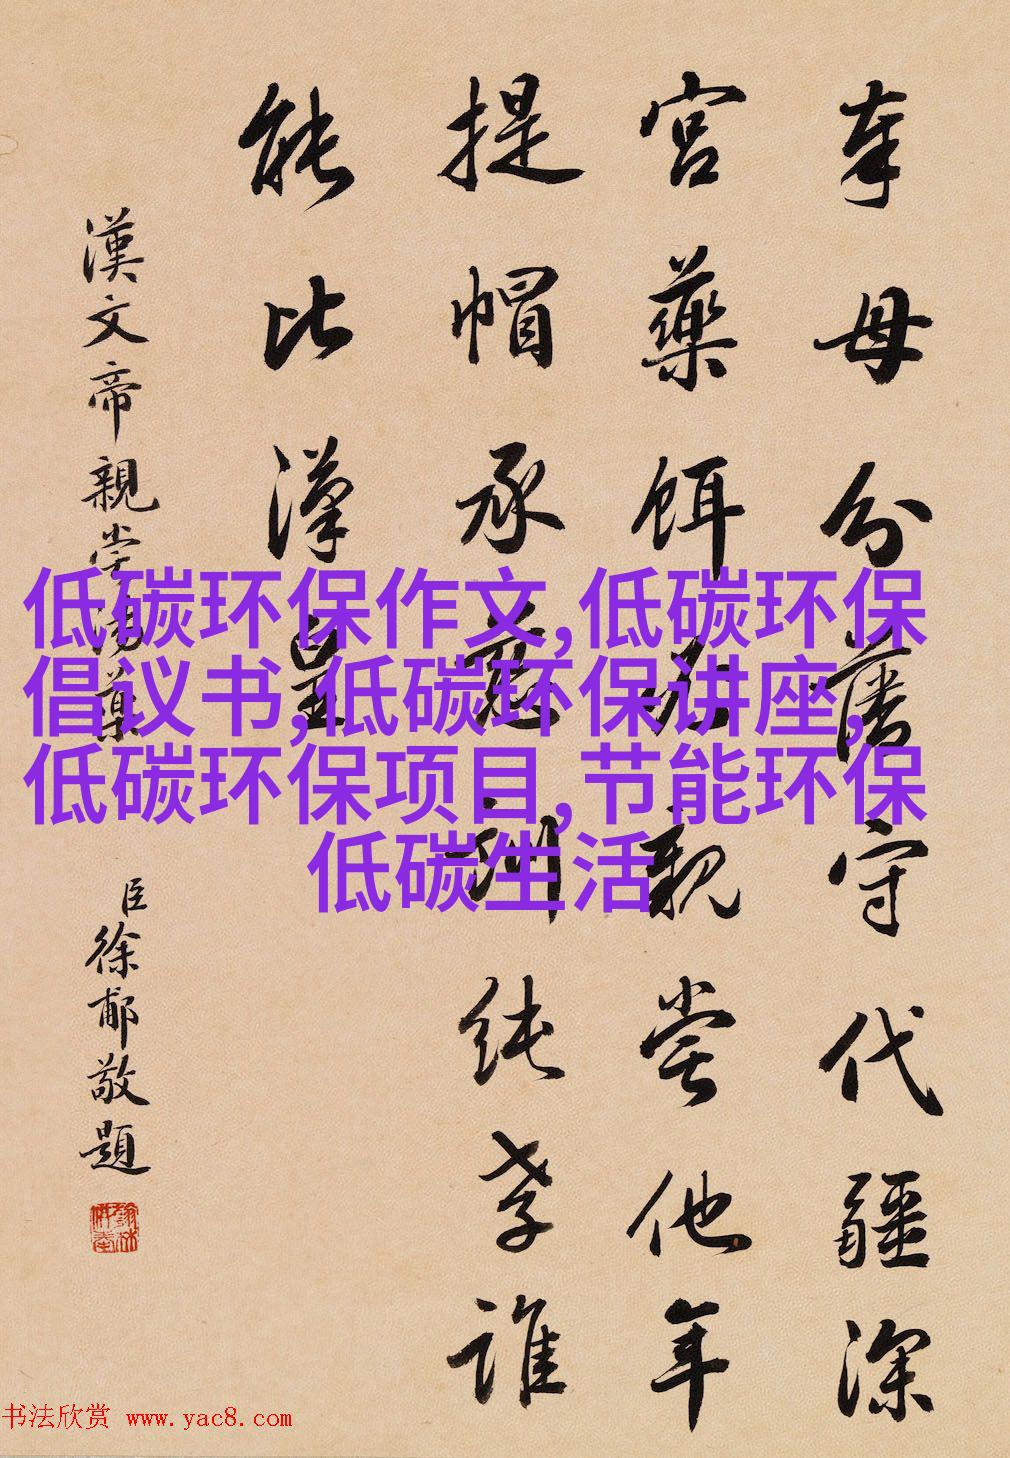 奉母分藩守代疆深
宮藥餌必親嘗他年
提帽承慈訓純孝誰
能比漢皇
漢文帝親嘗湯藥
臣徐郙敬題
低碳环保作文,低碳环保
倡议书,低碳环保讲座,
低碳环保项目,节能环保
低碳生活
书法欣赏 www.yac8.com